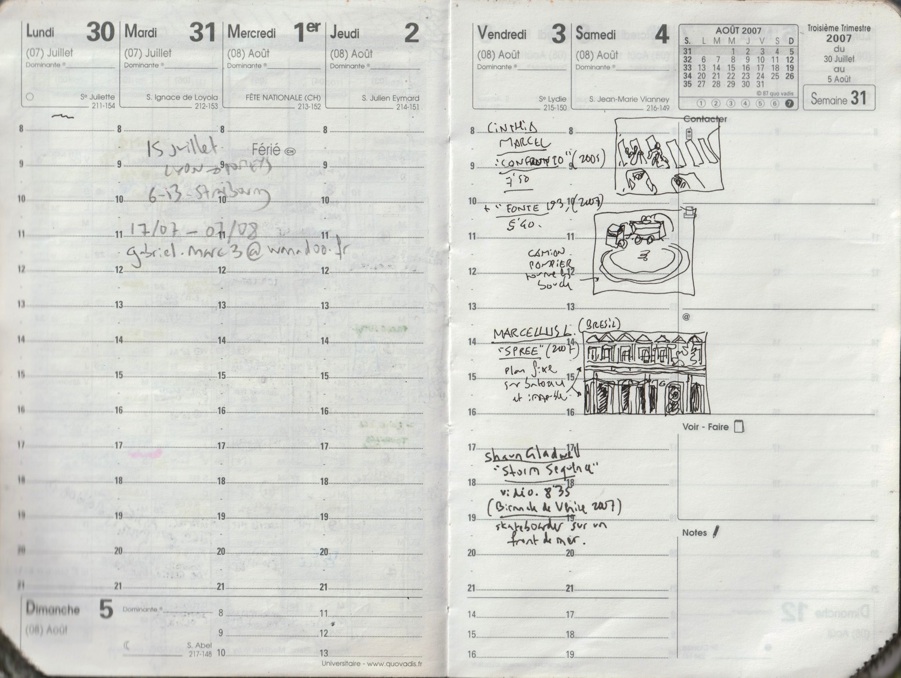 Lundi 30
(07) Juillet
Dominante
Ste Juliette
211-154
Mardi 31
(07) Juillet
Dominante
S. Ignace de Loyola
212-153
Mercredi 1er
(08) Août
Dominante
FÊTE NATIONALE (CH)
213-152
Jeudi 2
(08) Août
Dominante
S. Julien Eymard
214-151
8 8 8 8
9 9 9 9
10 10 10 10
11 11 11 11
12 12 12 12
13 13 13 13
14 14 14 14
15 15 15 15
16 16 16 16
17 17 17 17
18 18 18 18
19 19 19 19
20 20 20 20
21 21 21 21
Férié
15 juillet
Lyon
6-13 - Strasbourg
17/07 - 07/08
gabriel.marc3@wanadoo.fr
Dimanche 5
(08) Août
Dominante
S. Abel
217-148
8 11
9 12
10 13
Universitaire - www.quovadis.fr
Vendredi 3
(08) Août
Dominante
Ste Lydie
215-150
Samedi 4
(08) Août
Dominante
S. Jean-Marie Vianney
216-149
AOÛT 2007
S. L M M J V S D
31 1 2 3 4 5
32 6 7 8 9 10 11 12
33 13 14 15 16 17 18 19
34 20 21 22 23 24 25 26
35 27 28 29 30 31
© BT quo vadis
1 2 3 4 5 6 7
Troisième Trimestre
2007
du
30 Juillet
au
5 Août
Semaine 31
Contacter
@
Voir - Faire
Notes
8 8
9 9
10 10
11 11
12 12
13 13
14 14
15 15
16 16
17 17
18 18
19 19
20 20
21 21
14 17
15 18
16 19
CINTHIA
MARCEL
"CONFRONTO" (2005)
7'50
+ "FONTE 193" (2007)
5'40.
CAMION
POMPIER
tourne en
boucle
MARCELLVS L. (BRESIL)
"SPREE" (2007)
plan fixe
sur bateau
et
Shaun Gladwell
"Storm Sequence"
vidéo. 8'35
(Biennale de Venise 2007)
skateboarder sur un
front de mer.